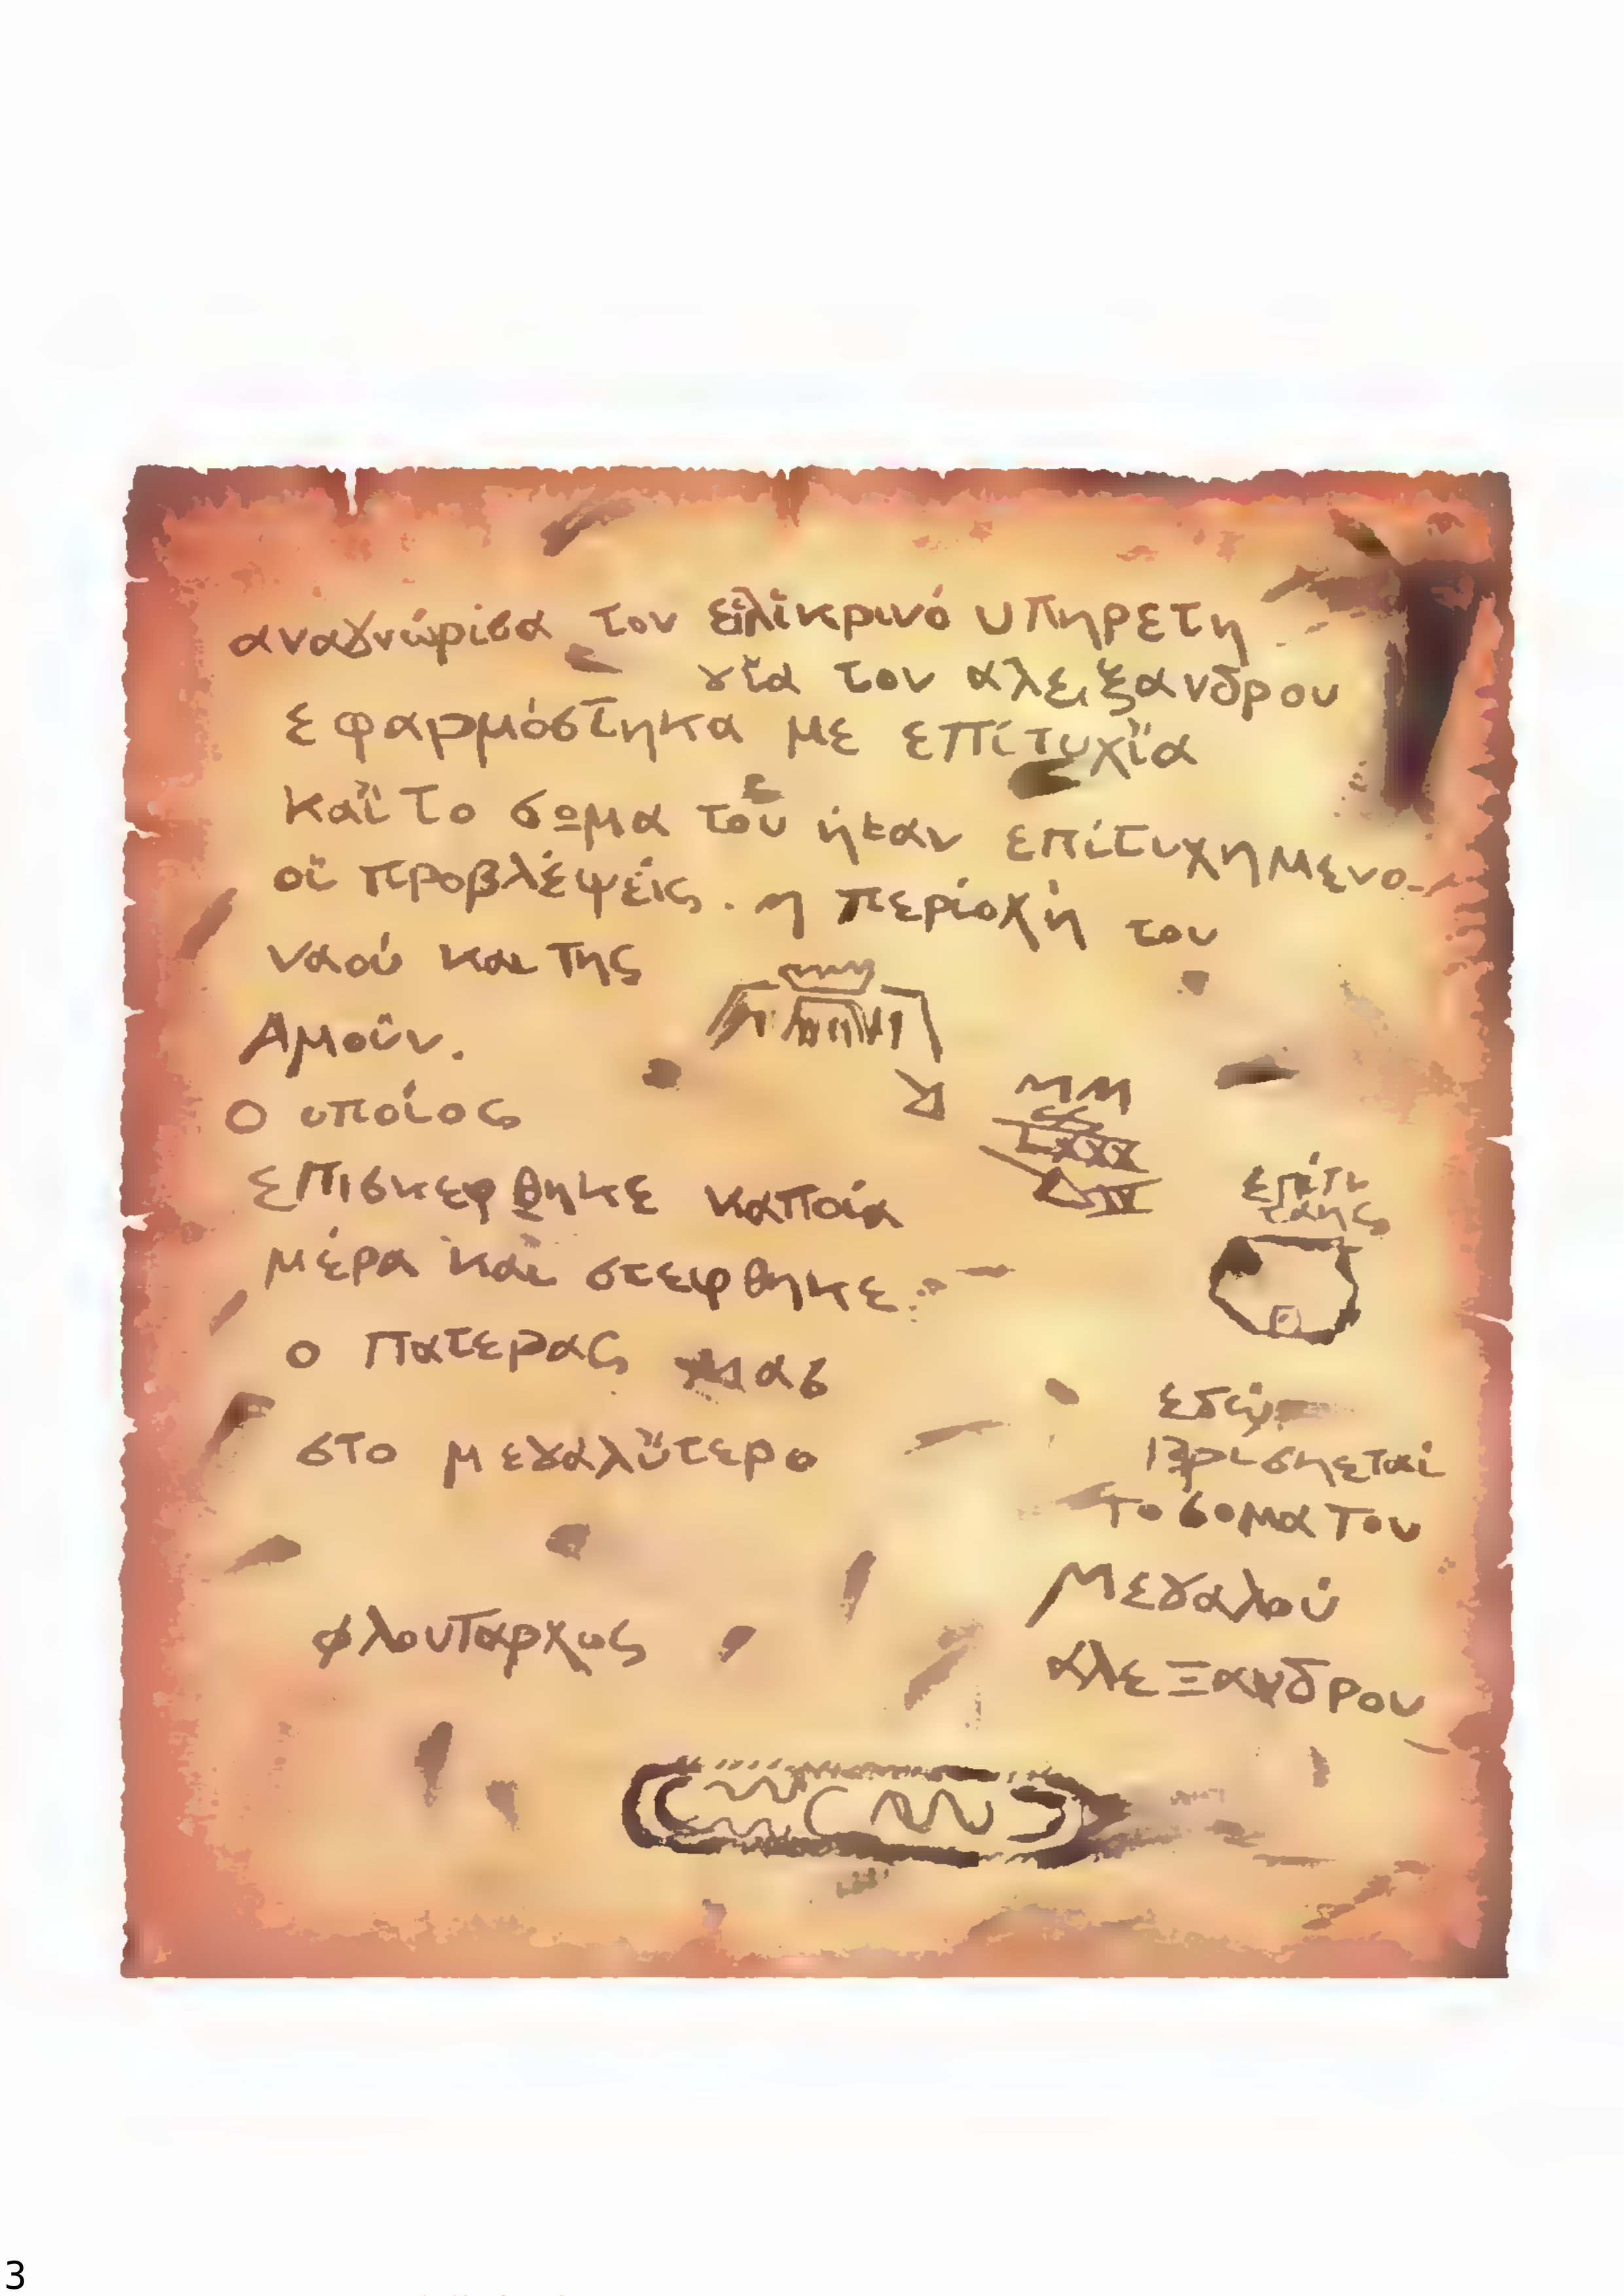 αναγνώρισα τον ειλικρινό υπηρετη
γϊα τον αλεξανδρου
εφαρμόστηκα με επίτυχϊα
καϊ το σωμα του ήταν επίτυχημενο
οϊ προβλέψεις. η περίοχή του
ναού και της
Αμούν.
Ο οποίος
επισκεφθηκε καποία
μέρα και στεφθηκε
ο πατερας μας
στο μεγαλΰτερο
φλουταρχος
το σομα του
Μεγαλού
αλεΞανδρου
3